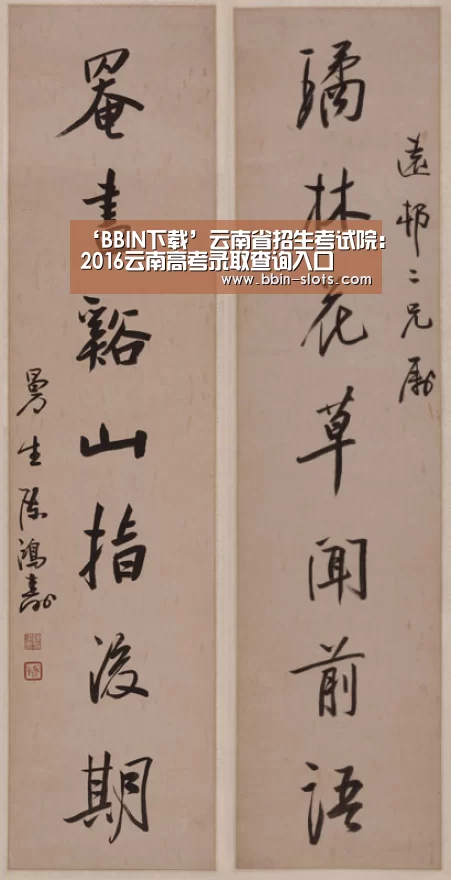 ‘BBIN下载’云南省招生考试院：
2016云南高考录取查询入口
www.bbin-slots.com
遠邨二兄属
璚林花草聞前語
罨畫谿山指後期
曼生陳鴻壽